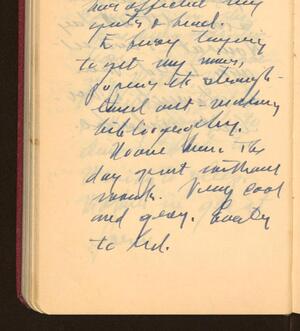 has affected my
& head.
& busy trying
to get my mss,
papers etc straigh-
tened out – making
bibliography.
Home here the
day spent without
work. Very cool
and gray. Early
to bed.